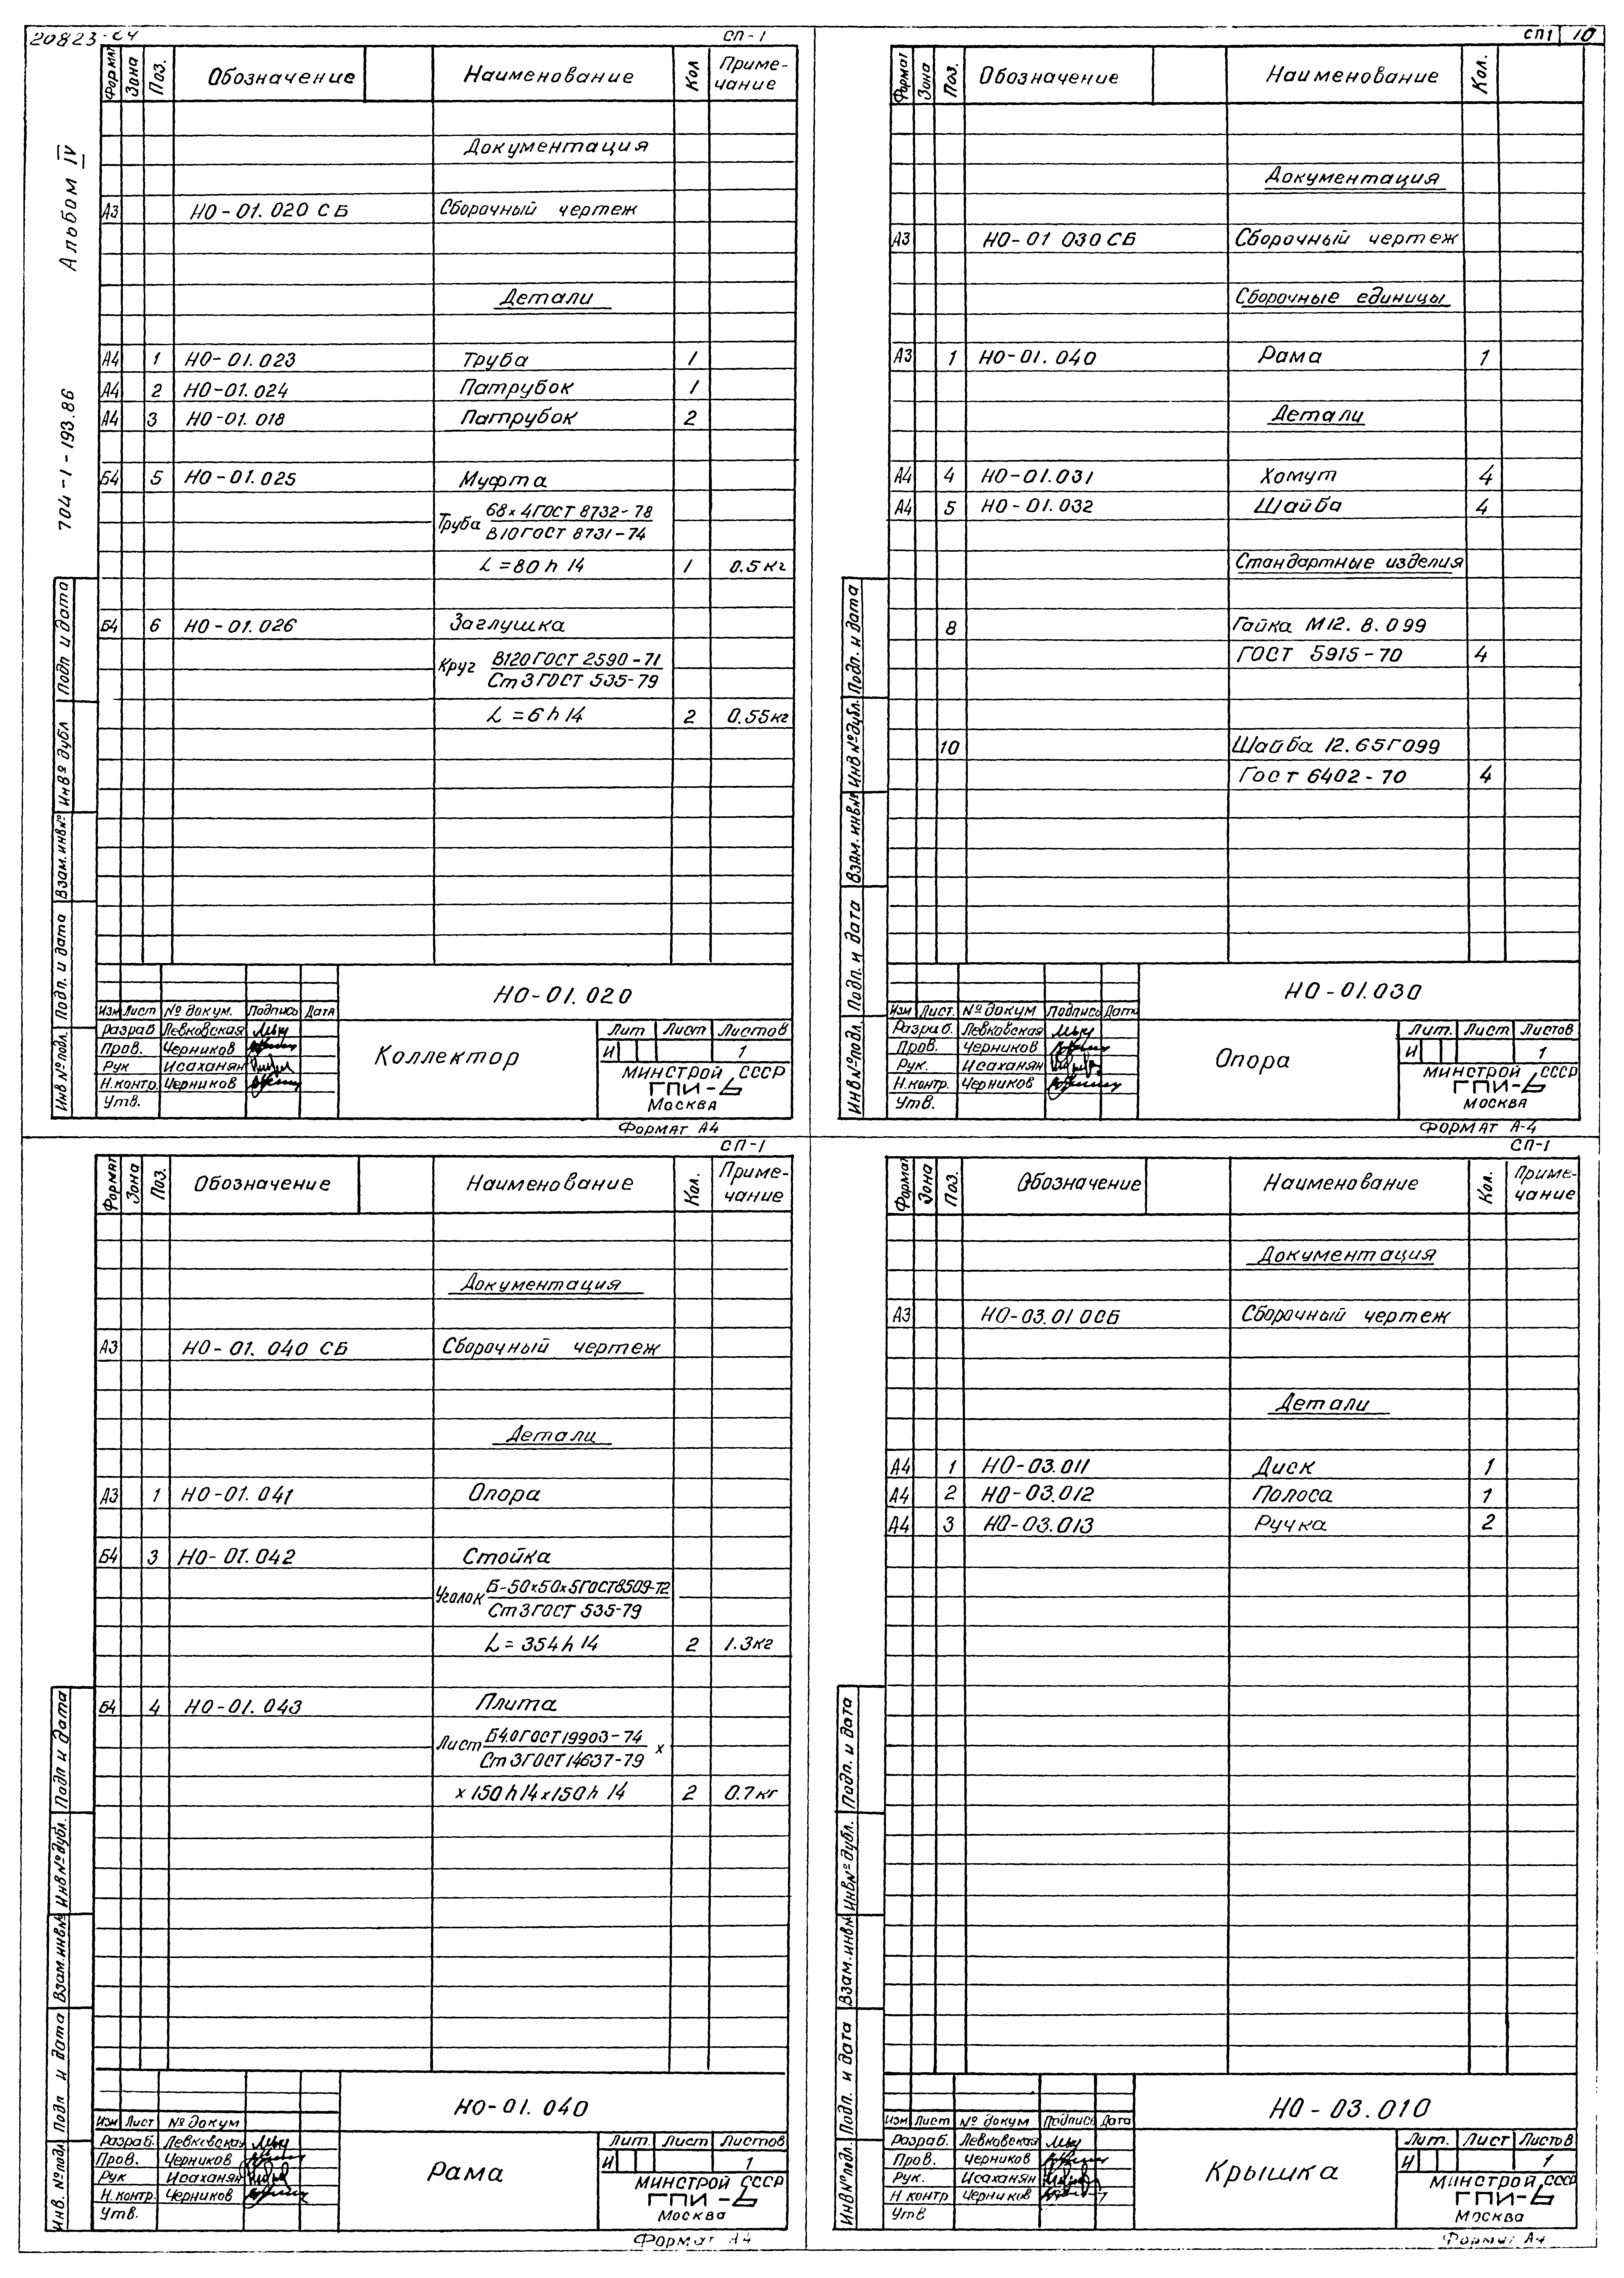 20823-С4
Альбом IV
704-1-193.86
СП-1
Формат Зона Поз. Обозначение Наименование Кол Приме-
чание
Документация
А3 НО-01.020 СБ Сборочный чертеж
Детали
А4 1 НО-01.023 Труба 1
А4 2 НО-01.024 Патрубок 1
А4 3 НО-01.018 Патрубок 2
Б4 5 НО-01.025 Муфта
Труба 68х4 ГОСТ 8732-78
В10 ГОСТ 8731-74
L=80 h 14 1 0.5кг
Б4 6 НО-01.026 Заглушка
Круг В120 ГОСТ 2590-71
Ст 3 ГОСТ 535-79
L=6 h 14 2 0.55кг
Подп и дата
Инв № дубл
Взам.инв№
Подп. и дата
Инв № подл.
НО-01.020
Изм Лист № докум. Подпись Дата
Разраб Левковская
Пров. Черников
Рук Исаханян
Н.контр. Черников
Утв.
Коллектор
Лит Лист Листов
И 1
МИНСТРОЙ СССР
ГПИ-6
Москва
Формат А4
СП1 10
Формат Зона Поз. Обозначение Наименование Кол.
Документация
А3 НО-01 030 СБ Сборочный чертеж
Сборочные единицы
А3 1 НО-01.040 Рама 1
Детали
А4 4 НО-01.031 Хомут 4
А4 5 НО-01.032 Шайба 4
Стандартные изделия
8 Гайка М12.8.099
ГОСТ 5915-70 4
10 Шайба 12.65Г099
Гост 6402-70 4
Подп. и дата
Инв № дубл.
Взам. инв№
Подп. и дата
Инв № подл.
НО-01.030
Изм Лист. № докум Подпись Дата
Разраб. Левковская
Пров. Черников
Рук. Исаханян
Н.контр. Черников
Утв.
Опора
Лит. Лист Листов
И 1
МИНСТРОЙ СССР
ГПИ-6
МОСКВА
ФОРМАТ А-4
СП-1
Формат Зона Поз. Обозначение Наименование Кол. Приме-
чание
Документация
А3 НО-01.040 СБ Сборочный чертеж
Детали
А3 1 НО-01.041 Опора
Б4 3 НО-01.042 Стойка
Уголок Б-50х50х5 ГОСТ8509-72
Ст 3 ГОСТ 535-79
L=354 h 14 2 1.3кг
Б4 4 НО-01.043 Плита
Лист Б4.0 ГОСТ 19903-74 х
Ст 3 ГОСТ 14637-79
х 150 h 14 х 150 h 14 2 0.7кг
Подп и дата
Инв № дубл.
Взам.инв№
Подп и дата
Инв. № подл
НО-01.040
Изм Лист № докум
Разраб. Левковская
Пров. Черников
Рук Исаханян
Н.контр Черников
Утв.
Рама
Лит. Лист Листов
И 1
МИНСТРОЙ СССР
ГПИ-6
Москва
Формат А4
СП-1
Формат Зона Поз. Обозначение Наименование Кол. Приме-
чание
Документация
А3 НО-03.010СБ Сборочный чертеж
Детали
А4 1 НО-03.011 Диск 1
А4 2 НО-03.012 Полоса 1
А4 3 НО-03.013 Ручка 2
Подп. и дата
Инв № дубл.
Взам. инв.№
Подп. и дата
Инв № подл.
НО-03.010
Изм Лист № докум Подпись Дата
Разраб. Левковская
Пров. Черников
Рук. Исаханян
Н контр Черников
Утв
Крышка
Лит. Лист Листов
И 1
МИНСТРОЙ СССР
ГПИ-6
Москва
Формат А4